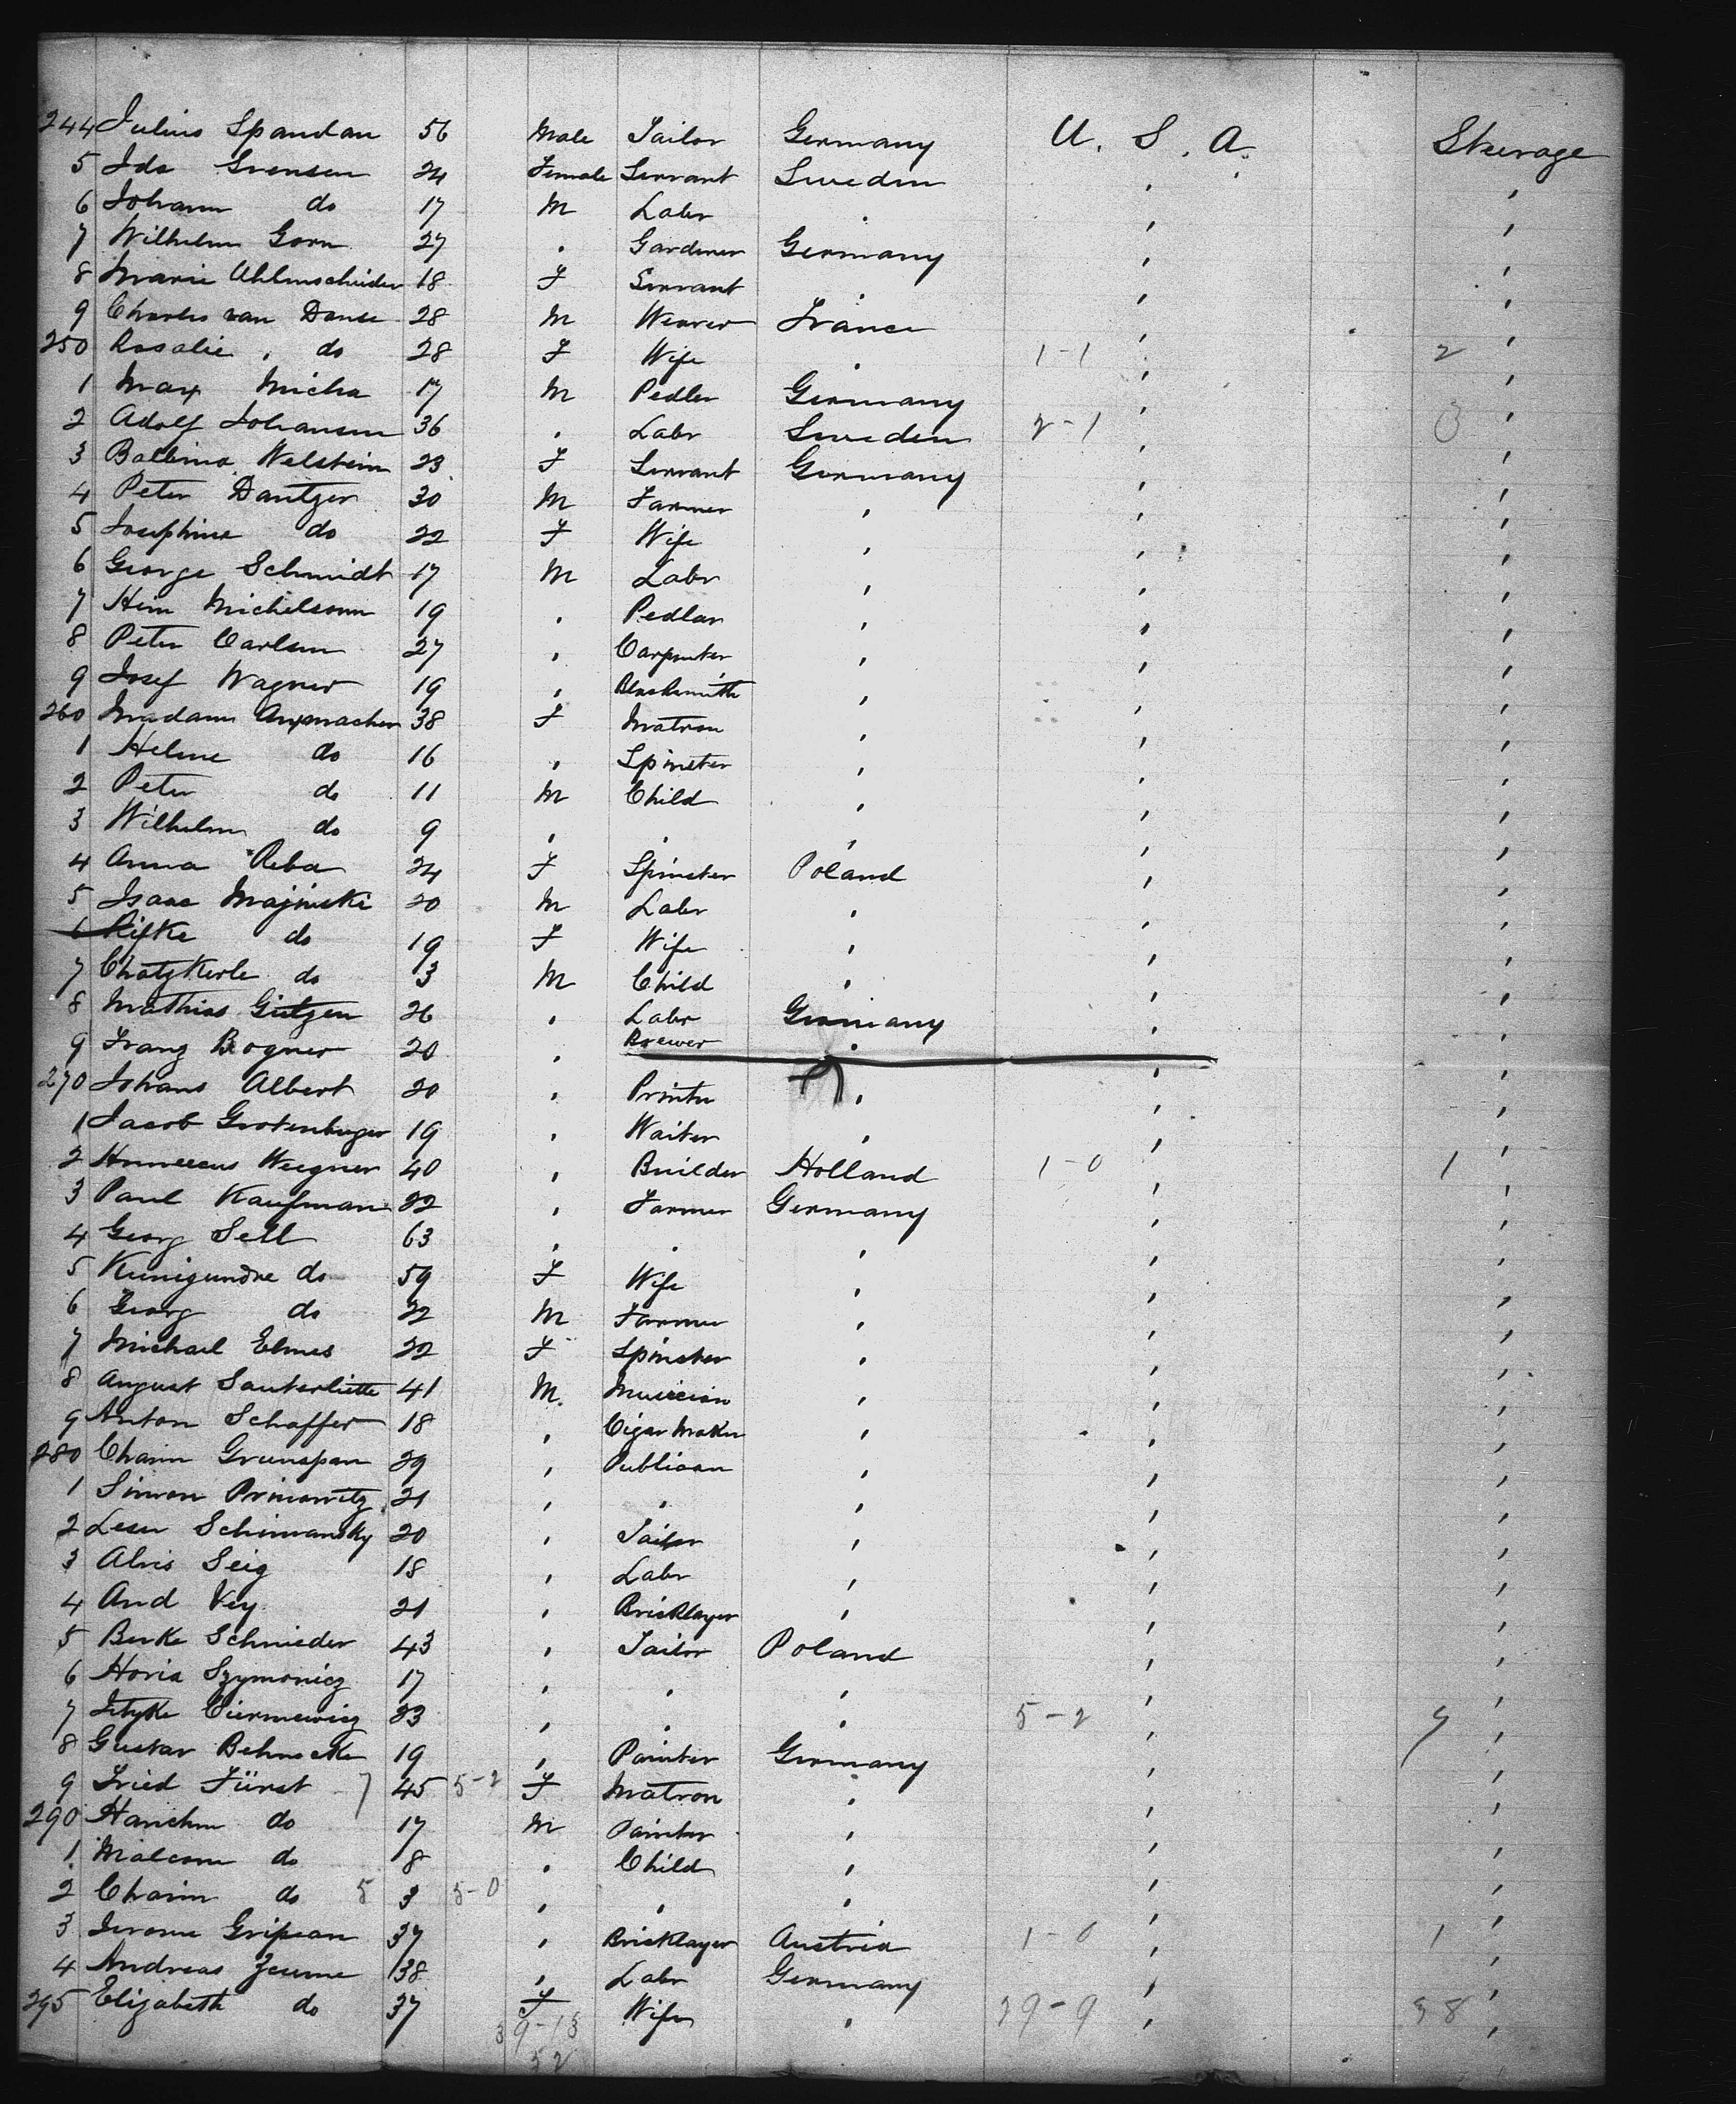 244 Julius Spandau 56 Male Tailor Germany U. S. A. Steerage
5 Ida Svensen 24 Female Servant Sweden ' '
6 Johann do 17 M Labr . ' '
7 Wilhelm Gorn 27 . Gardener Germany ' '
8 Marie Uhlmscheider 18 F Servant . ' '
9 Charles van Danse 28 M Weaver France ' '
250 Rosalie , do 28 F Wife . 1-1 ' 2 '
1 Max Micha 17 M Pedler Germany ' '
2 Adolf Johansen 36 . Labr Sweden 2-1 ' 3 '
3 Balbina Welstein 23 F Servant Germany ' '
4 Peter Dantzer 30 M Farmer ' ' '
5 Josephine do 22 F Wife ' ' '
6 George Schmidt 17 M Labr ' ' '
7 Heim Michelsonn 19 . Pedlar ' ' '
8 Peter Carlsen 27 ' Carpenter ' ' '
9 Josef Wagner 19 ' Blacksmith ' ' '
260 Madam Axmacher 38 F Matron ' ' '
1 Helene do 16 ' Spinster ' ' '
2 Peter do 11 M Child ' ' '
3 Wilhelm do 9 ' . ' ' '
4 Anna Reba 24 F Spinster Poland ' '
5 Isaac Majinski 20 M Labr ' ' '
6 Rifke do 19 F Wife ' ' '
7 Chatzkerle do 3 M Child ' ' '
8 Mathias Gütgen 26 ' Labr Germany ' '
9 Franz Bogner 20 ' Brewer . ' '
270 Johans Albert 20 ' Printer ' ' '
1 Jacob Grotenberger 19 ' Waiter ' ' '
2 Weegner 40 ' Builder Holland 1-0 ' 1 '
3 Paul Kaufman 22 ' Farmer Germany ' '
4 Georg Sell 63 ' . ' ' '
5 Kunigundre do 59 F Wife ' ' '
6 Georg do 22 M Farmer ' ' '
7 Michael Elmes 22 F Spinster ' ' '
8 August Sauterliette 41 M. Musician ' ' '
9 Anton Schaffer 18 ' Cigar Maker ' ' '
280 Chaim Grunspan 29 ' Publican ' ' '
1 Simon Prinowitz 21 ' ' ' ' '
2 Leser Schimansky 20 ' Tailor ' ' '
3 Alvis Seig 18 ' Labr ' ' '
4 And Vey 21 ' Bricklayer ' ' '
5 Berke Schnieder 43 ' Tailor Poland ' '
6 Horia Szymonicz 17 ' ' ' ' '
7 Ciermewicz 23 ' ' ' 5-2 ' 7 '
8 Gustav Behnscke 19 ' Painter Germany ' '
9 Fried Fürst 7 45 5-2 F Matron . ' '
290 Hanchen do 17 M Painter ' ' '
1 Malcom do 8 ' Child ' ' '
2 Chaim do 5 3 5-0 ' ' ' ' '
3 Jerome Gripean 37 ' Bricklayer Austria 1-0 ' 1 '
4 Andreas Zeume 38 ' Labr Germany ' '
295 Elizabeth do 37 F Wife ' 29-9 ' 38 '
39-13
52